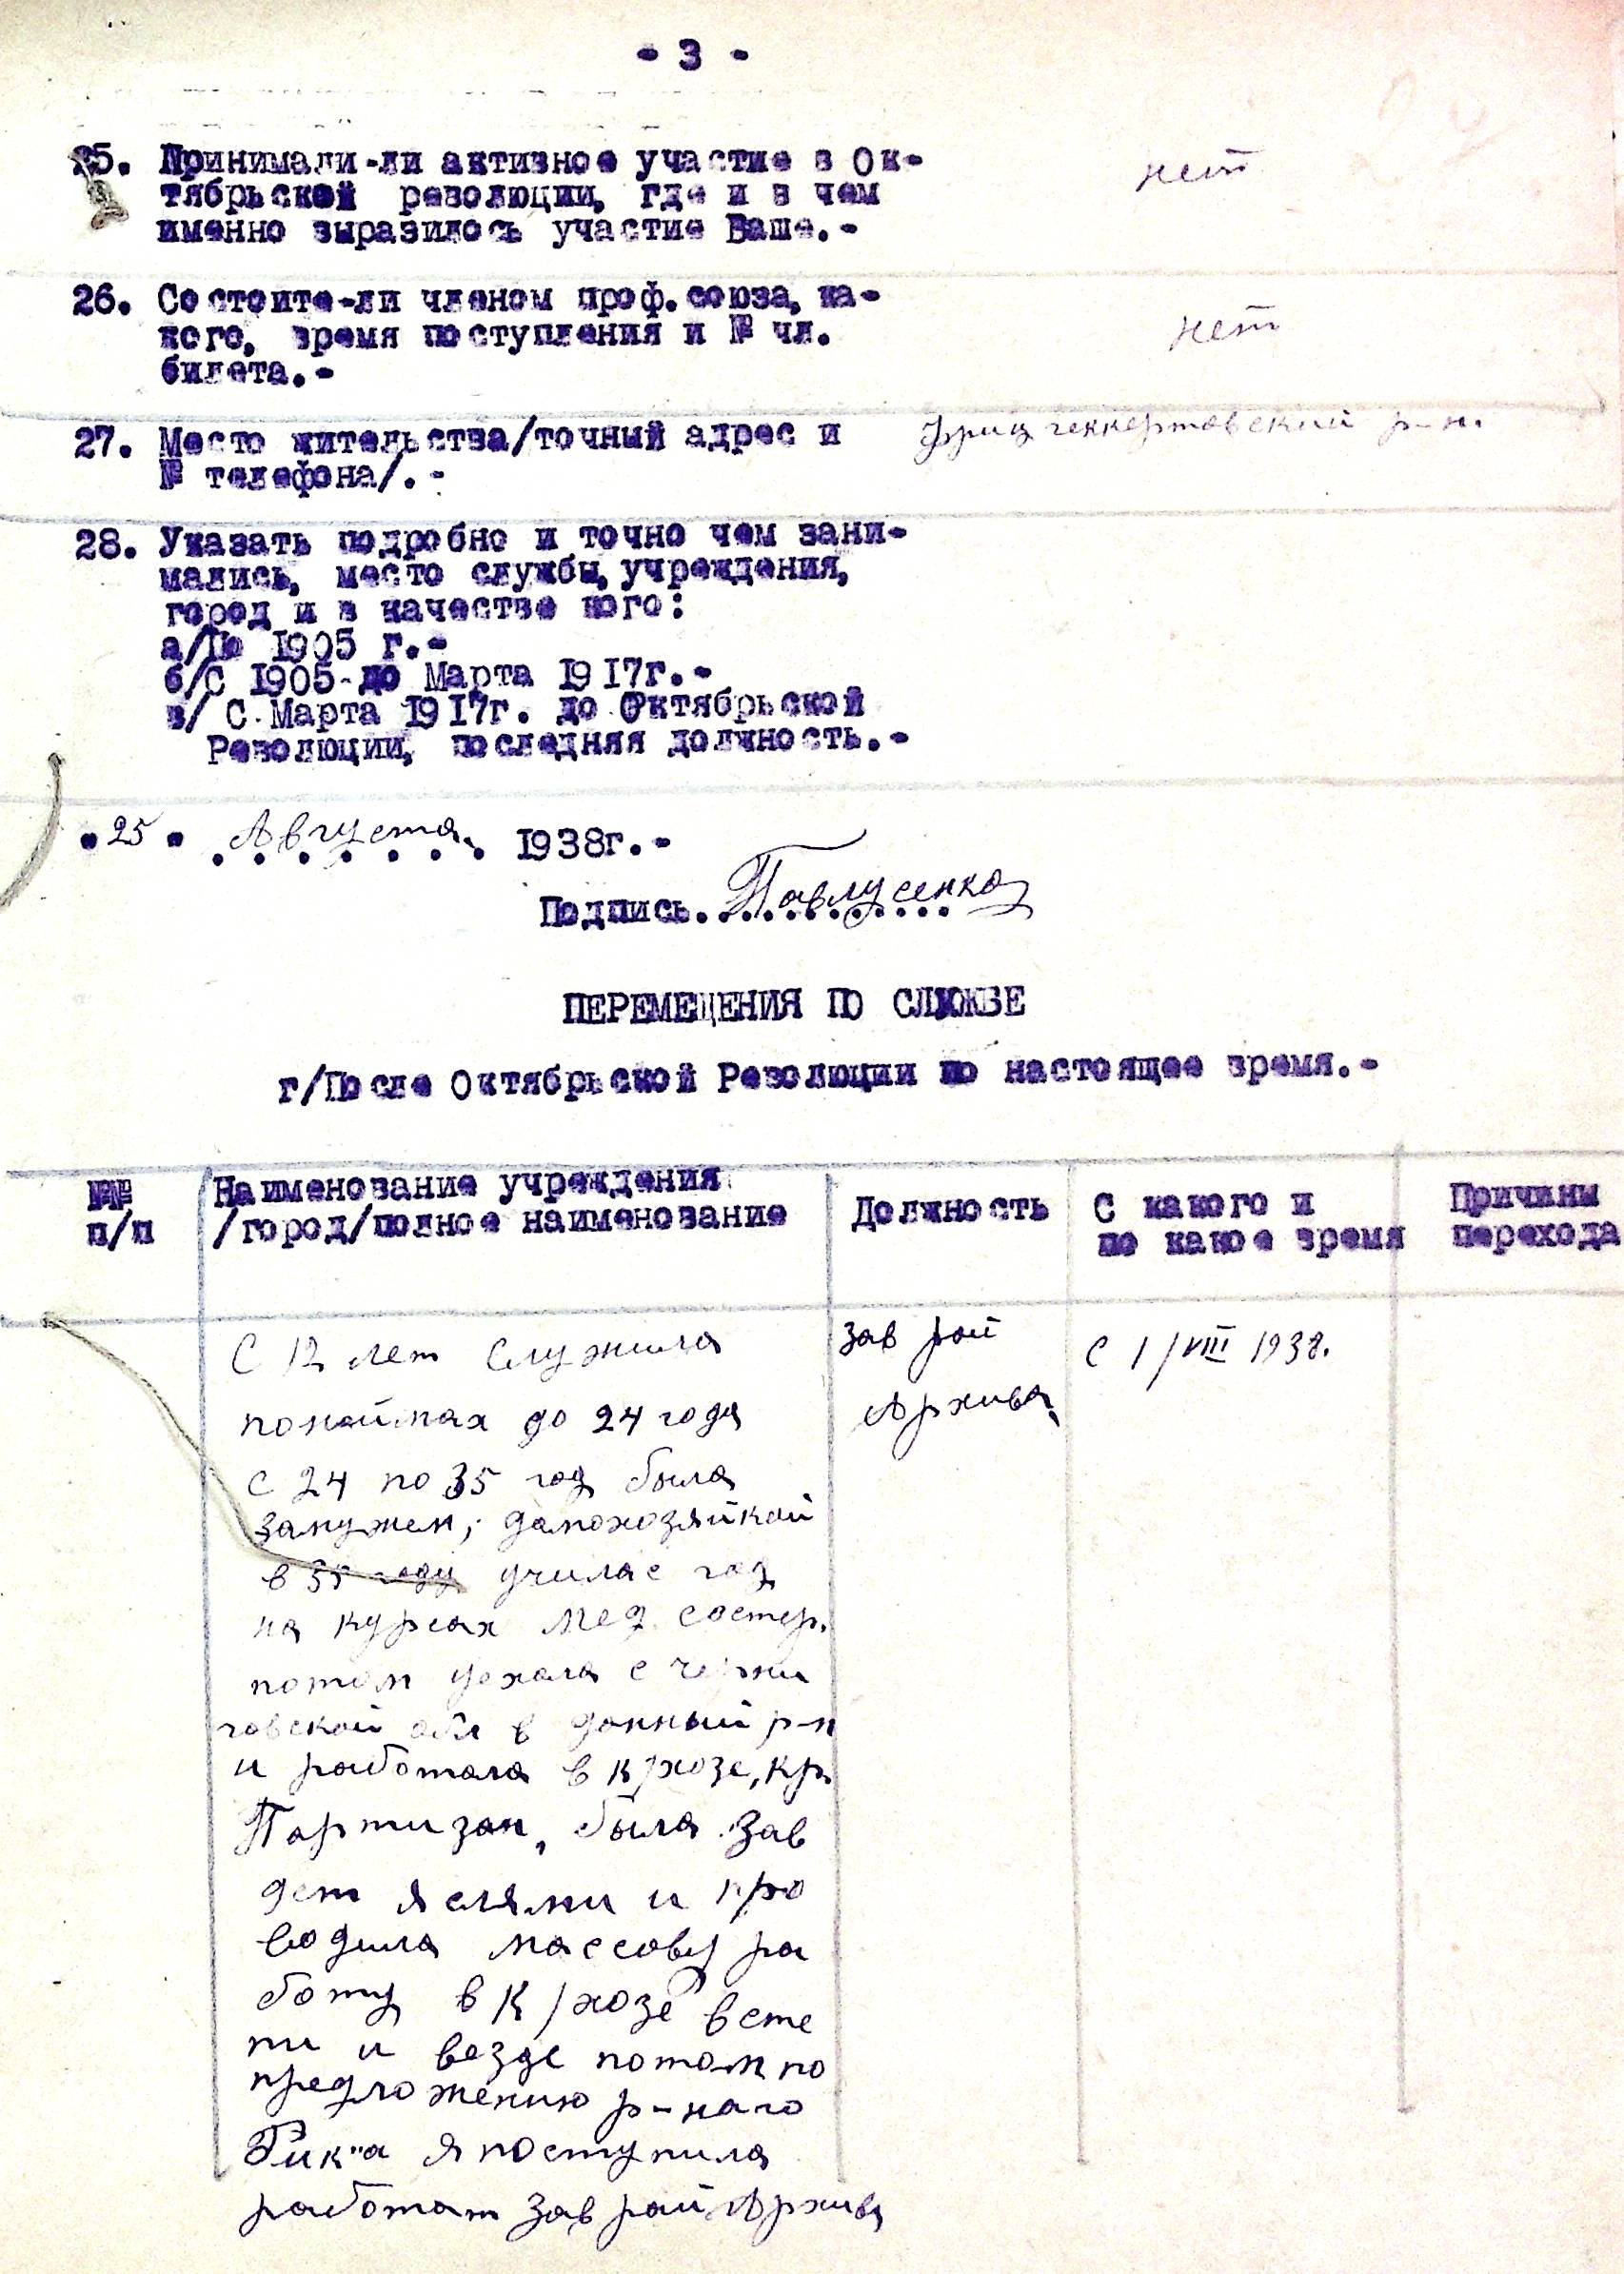 - 3 -
25. Принимали-ли активное участие в Ок-
тябрьской революции, где и в чем
именно выразилось участие Ваше.-
нет
26. Состоите-ли членом проф.союза, ка-
кого, время поступления и № чл.
билета.-
нет
27. Место жительства/точный адрес и
№ телефона/.-
Фриц геккертовский р-н.
28. Указать подробно и точно чем зани-
мались, место службы, учреждения,
город и в качестве кого:
а/До 1905 г.-
б/С 1905 до Марта 1917г.-
в/ С Марта 1917г. до Октябрьской
Революции, последняя должность.-
"25" Августа 1938г.-
Подпись. Павлусенко
ПЕРЕМЕЩЕНИЯ ПО СЛУЖБЕ
г/После Октябрьской Революции по настоящее время.-
№№
п/п
Наименование учреждения
/город/полное наименование
Должность
С какого и
по какое время
Причины
перехода
С 12 лет служила
понаймах до 24 года
с 24 по 35 год была
замужем, домохозяйкой
в 35 году училас год
на курсах мед. состер.
потом уехала с черни
говской обл в данный р-н
и работала в к/хозе, кр.
Партизан, была зав
дет яслями и про
водила массову ра
боту в к/хозе в сте
пи и везде потом по
предложению р-наго
Рик"а я поступила
работат зав рай Архива
зав рай
Архива
с 1/VIII 1938.